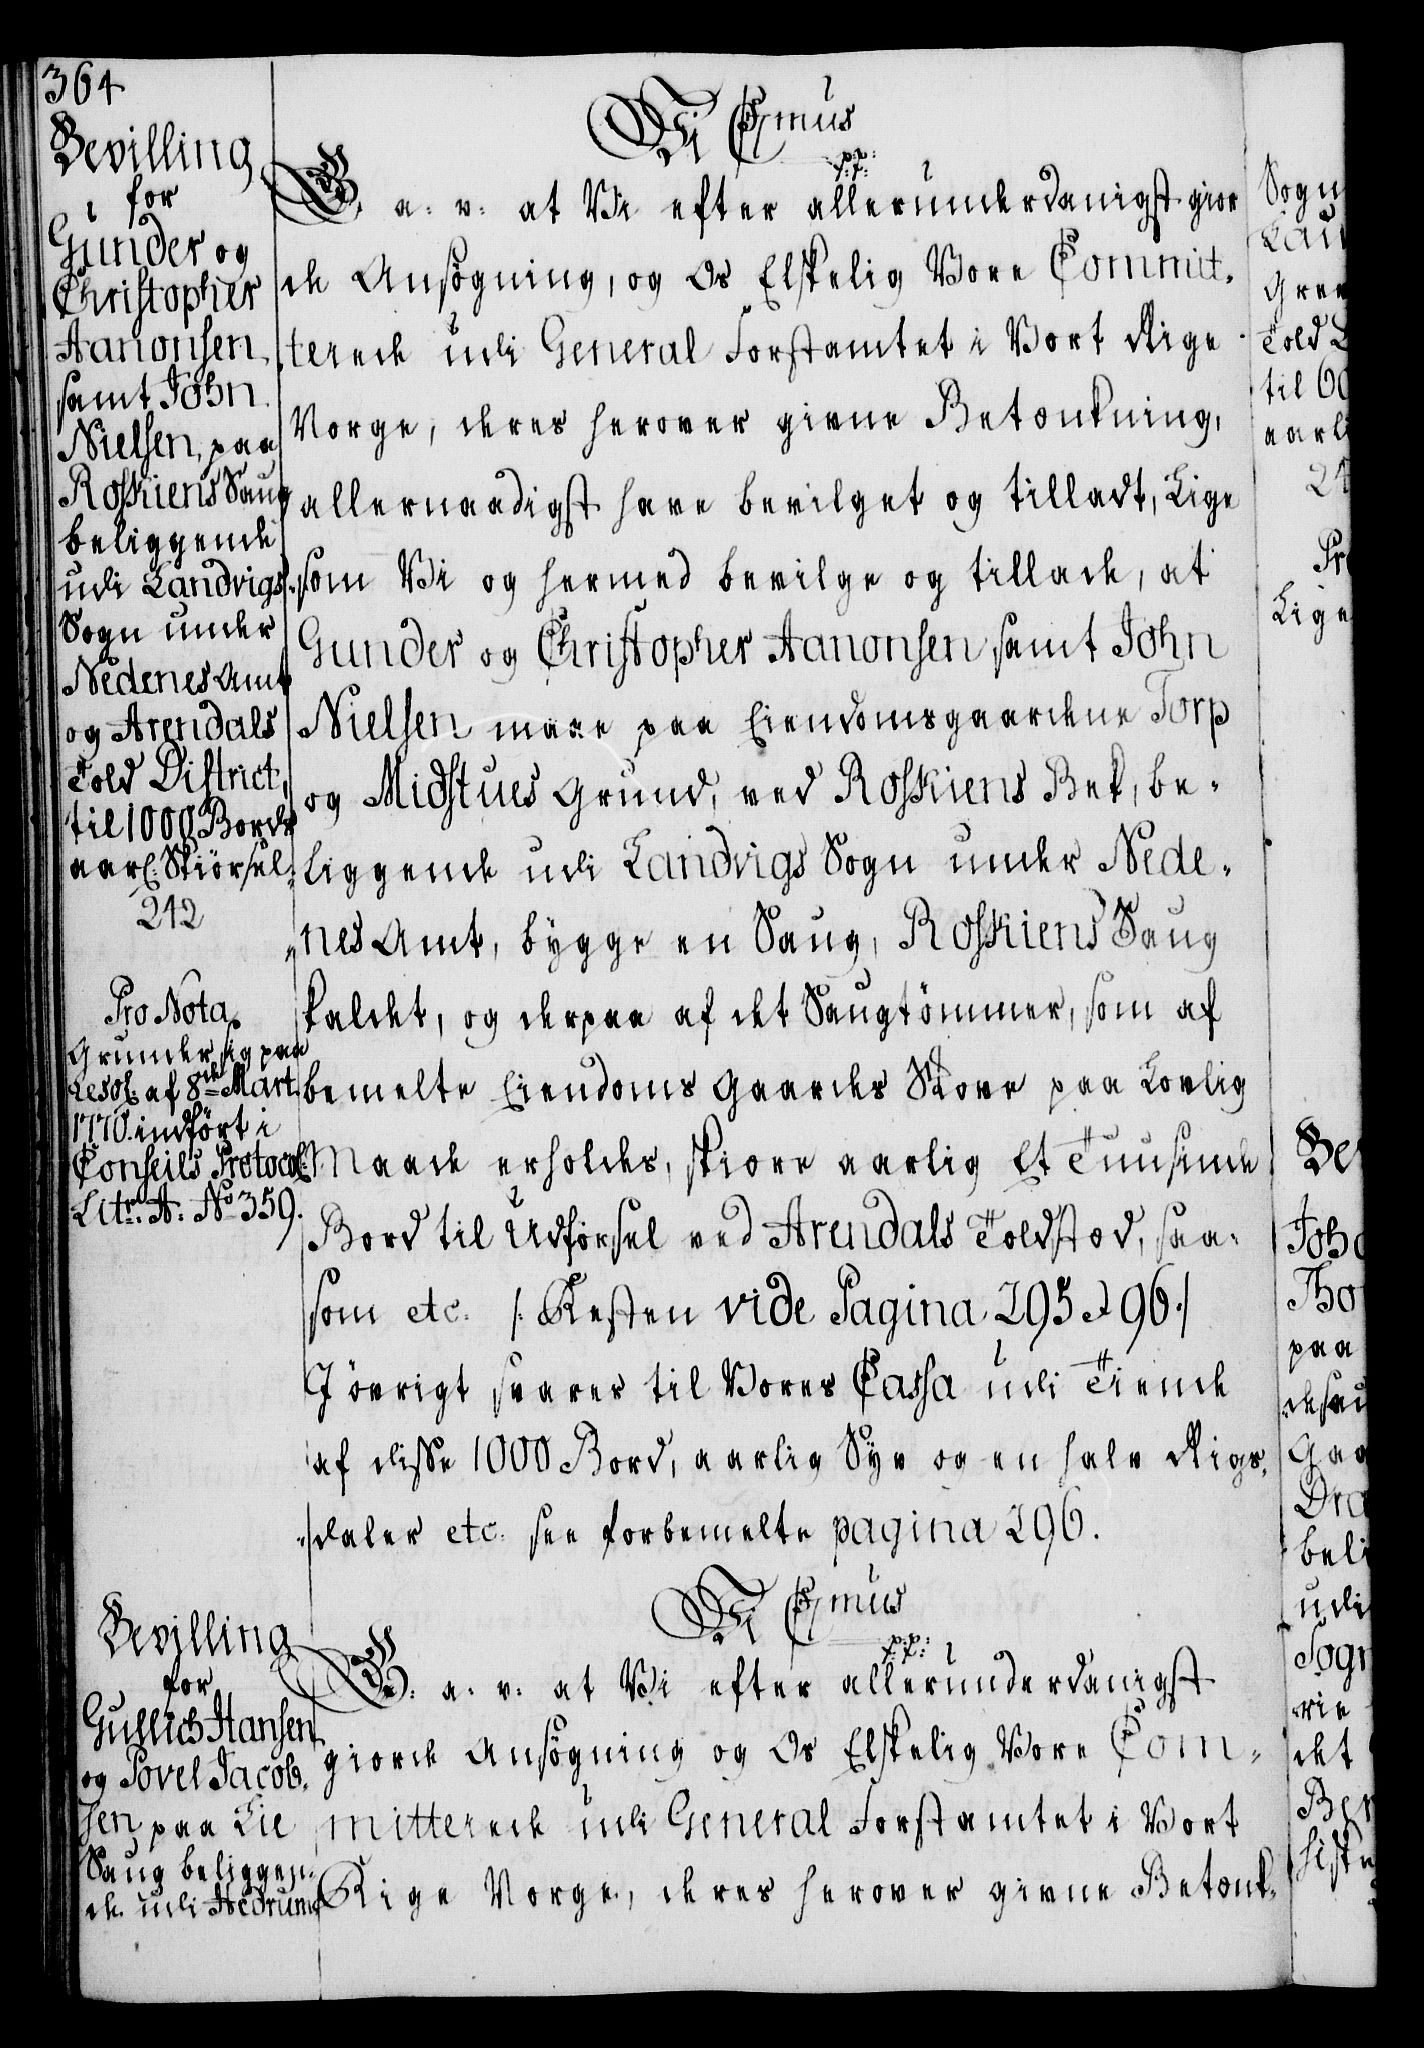 364
Bevilling
for
Gunder og
Christopher
Aanonsen
samt John
Nielsen, paa
Roskiens Saug
beliggende
udi Landvigs
Sogn under
Nedenes Amt
og Arendals
Told District,
til 1000 Borde
aarl: Skiörsel.
242
Pro Nota
Grunder sig paa
Resol: af 8de Mart:
1770. indfört i
Conseils Protocol:
Litr: A: No 359.
Vi C7mus
pp:
G. a: v: at Vi efter allerunderdanigst gior
de Ansögning, og Os Elskelig Vore Commit-
terede udi General Forstamtet i Vort Rige
Norge, deres herover givne Betænkning,
allernaadigst have bevilget og tilladt, Lige
som Vi og hermed bevilge og tillade, at
Gunder og Christopher Aanonsen samt John
Nielsen maae paa Eiendomsgaardene Torp
og Midstues Grund, ved Roskiens Bek, be-
liggende udi Landvigs Sogn under Nede-
nes Amt, bygge en Saug, Roskiens Saug
kaldet, og derpaa af det Saugtömmer, som af
bemelte Eiendoms Gaardes Skove paa Lovlig
Maade erholdes, skiære aarlig Et Tuusinde
Bord til Udförsel ved Arendals Toldstæd, saa-
som etc. /: Resten vide Pagina 295 & 96 :/
J övrigt svarer til Vores Cassa udi Tiende
af disse 1000 Bord, aarlig Syv og en halv Rigs-
daler etc. see forbemelte pagina 296.
Bevilling
for
Gullich Hansen
og Povel Jacob-
sen paa Lie
Saug beliggen-
de udi Hedrum
Vi C7mus
pp:
G: a: v: at Vi efter allerunderdanigst
giorde Ansögning og Os Elskelig Vore Com-
mitterede udi General Forstamtet i Vort
Rige Norge, deres herover givne Betænk-
Sogn
til 60
aarl
24
Pro
Lige
Be
paa
beli
udi
Sogn
det